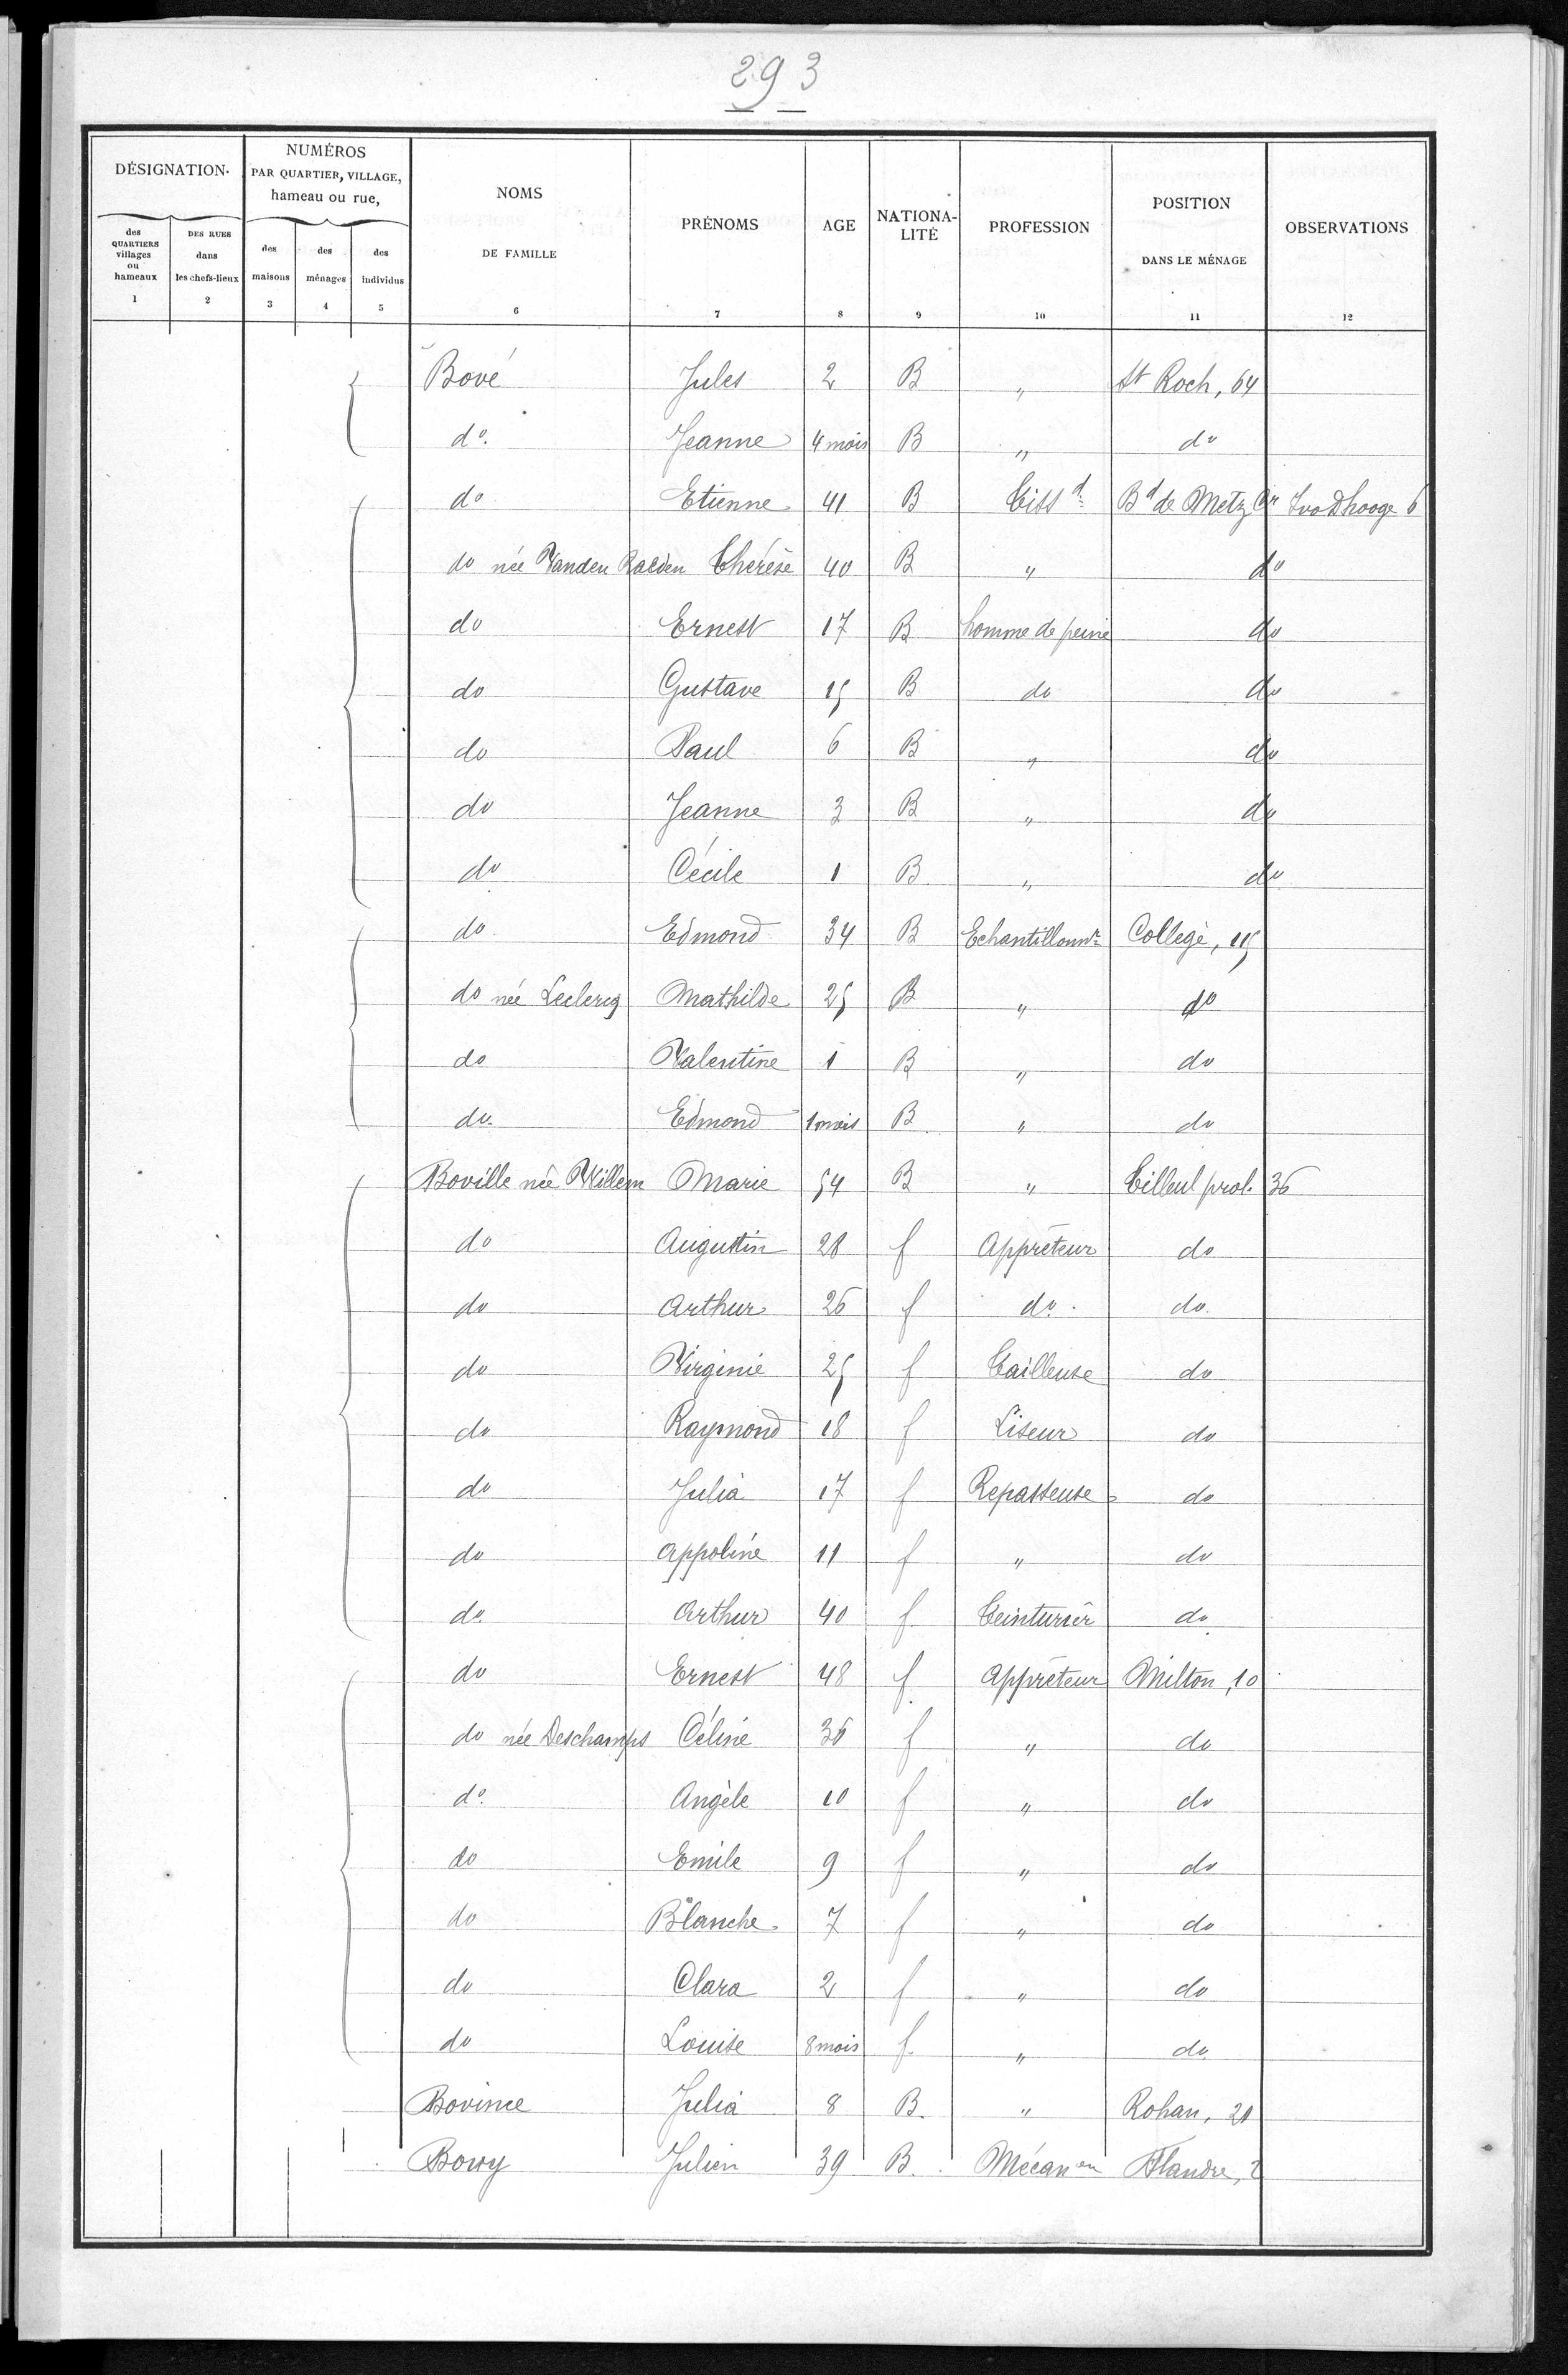 293
DÉSIGNATION.
NUMÉROS
PAR QUARTIER, VILLAGE,
hameau ou rue,
des QUARTIERS villages ou hameaux 1
DES RUES dans les chefs-lieux 2
des maisons 3
des ménages 4
des individus 5
NOMS DE FAMILLE 6
PRÉNOMS 7
AGE 8
NATIONA-LITÉ 9
PROFESSION 10
POSITION DANS LE MÉNAGE 11
OBSERVATIONS 12
Bové Jules 2 B " St Roch, 64
do. Jeanne 4 mois B " do
do Etienne 41 B Tissd Bd de Metz Cr Ivo Dhooge 6
do née Vanden Thérèse 40 B " do
do Ernest 17 B homme de peine do
do Gustave 15 B do do
do Paul 6 B " do
do Jeanne 3 B " do
do Cécile 1 B " do
do Edmond 34 B Echantillonnr College, 115
do née Leclercq Mathilde 25 B " do
do Valentine 1 B " do
do. Edmond 1 mois B " do
Boville née Willem Marie 54 B " Tilleul prol. 36
do Augustin 28 f Appréteur do
do Arthur 26 f do. do.
do Virginie 25 f Tailleuse do
do Raymond 18 f Liseur do
do Julia 17 f Repasseuse do
do Appoline 11 f " do
do. Arthur 40 f. Teinturier do
do Ernest 48 f. Appréteur Milton, 10
do née Deschamps Céline 36 f " do
do. Angèle 10 f " do
do Emile 9 f " do
do Blanche 7 f " do
do Clara 2 f " do
do Louise 8 mois f. " do
Bovince Julia 8 B. " Rohan, 21
Bovy Julien 39 B. Mécanen Flandre, 2